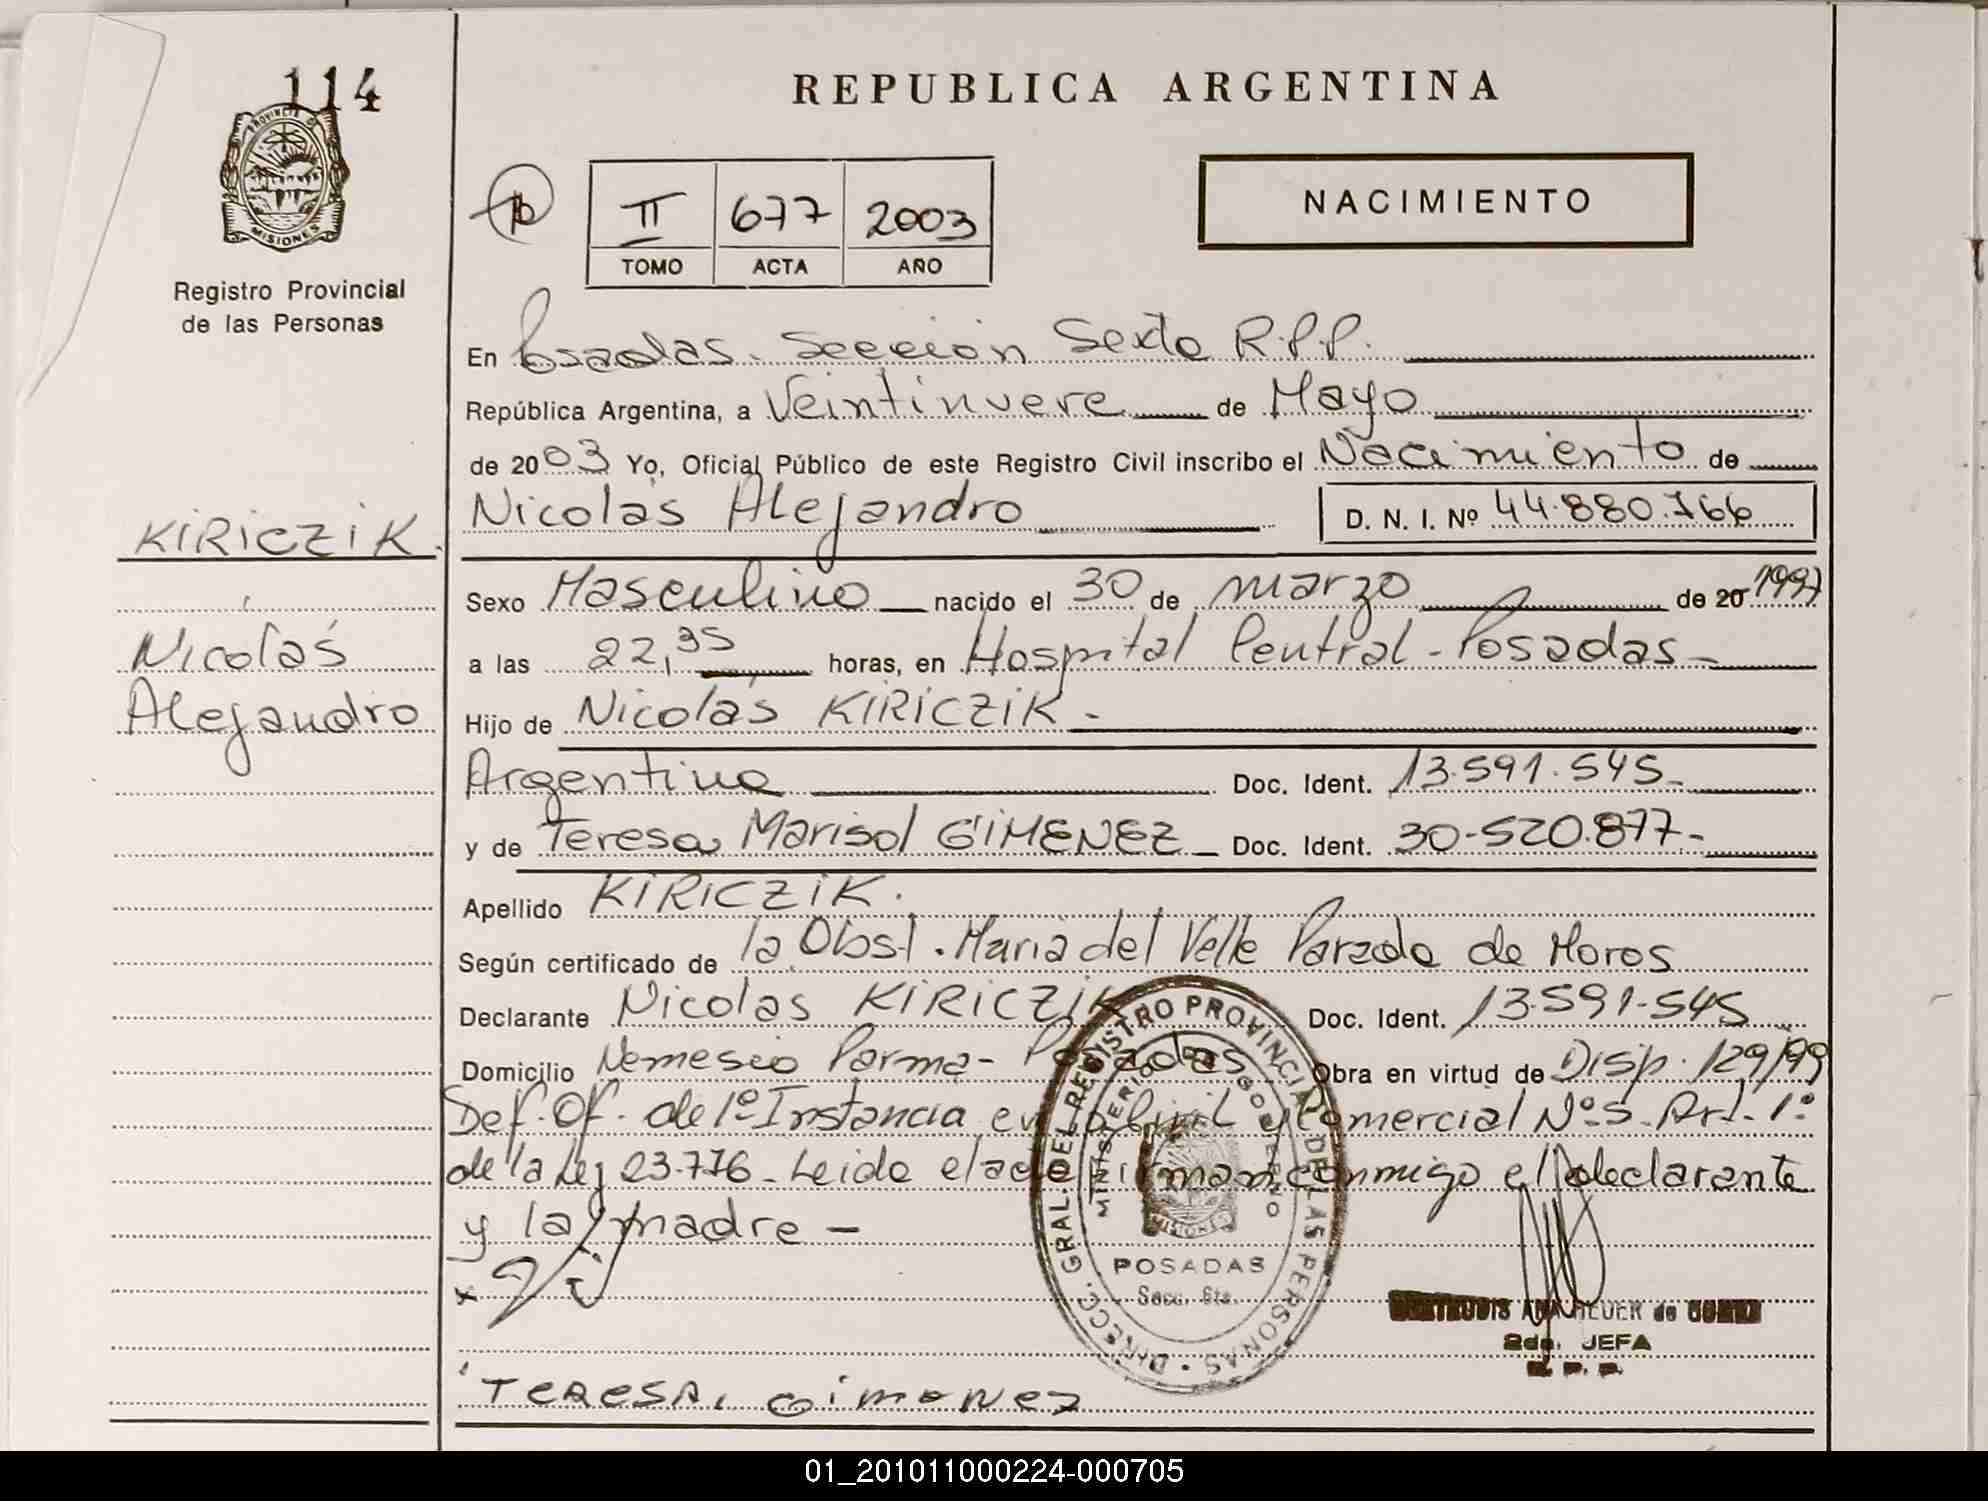 114
PROVINCIA DE
MISIONES
Registro Provincial
de las Personas
REPUBLICA ARGENTINA
II 677 2003
TOMO ACTA AÑO
NACIMIENTO
En Posadas. Sección Sexta R.P.P.
República Argentina, a Veintinueve de Mayo
de 2003 Yo, Oficial Público de este Registro Civil inscribo el Nacimiento de
Nicolás Alejandro D. N. I. Nº 44.880.766
KIRICZIK.
Nicolás
Alejandro
Sexo Masculino nacido el 30 de marzo de 20 1997
a las 22,35 horas, en Hospital Central - Posadas -
Hijo de Nicolás KIRICZIK -
Argentino Doc. Ident. 13.591.545-
y de Teresa Marisol GIMENEZ Doc. Ident. 30-520.877-
Apellido KIRICZIK.
Según certificado de la Obst. Maria del Valle Parada de Moros
Declarante Nicolas KIRICZIK Doc. Ident. 13.591-545
Domicilio Nemesio Parma - Posadas Obra en virtud de Disp. 129/99
Def. Of. de 1º Instancia en lo Civil y Comercial Nº 5. Art. 1º
de la Ley 23.776 - Leida el acta firman conmigo el declarante
y la madre -
DIRECC. GRAL. DEL REGISTRO PROVINCIAL DE LAS PERSONAS
MINISTERIO DE GOBIERNO
MISIONES
POSADAS
Secc. 6ta.
JEFA
R. P. P.
TERESA. GiMENEZ
01_201011000224-000705